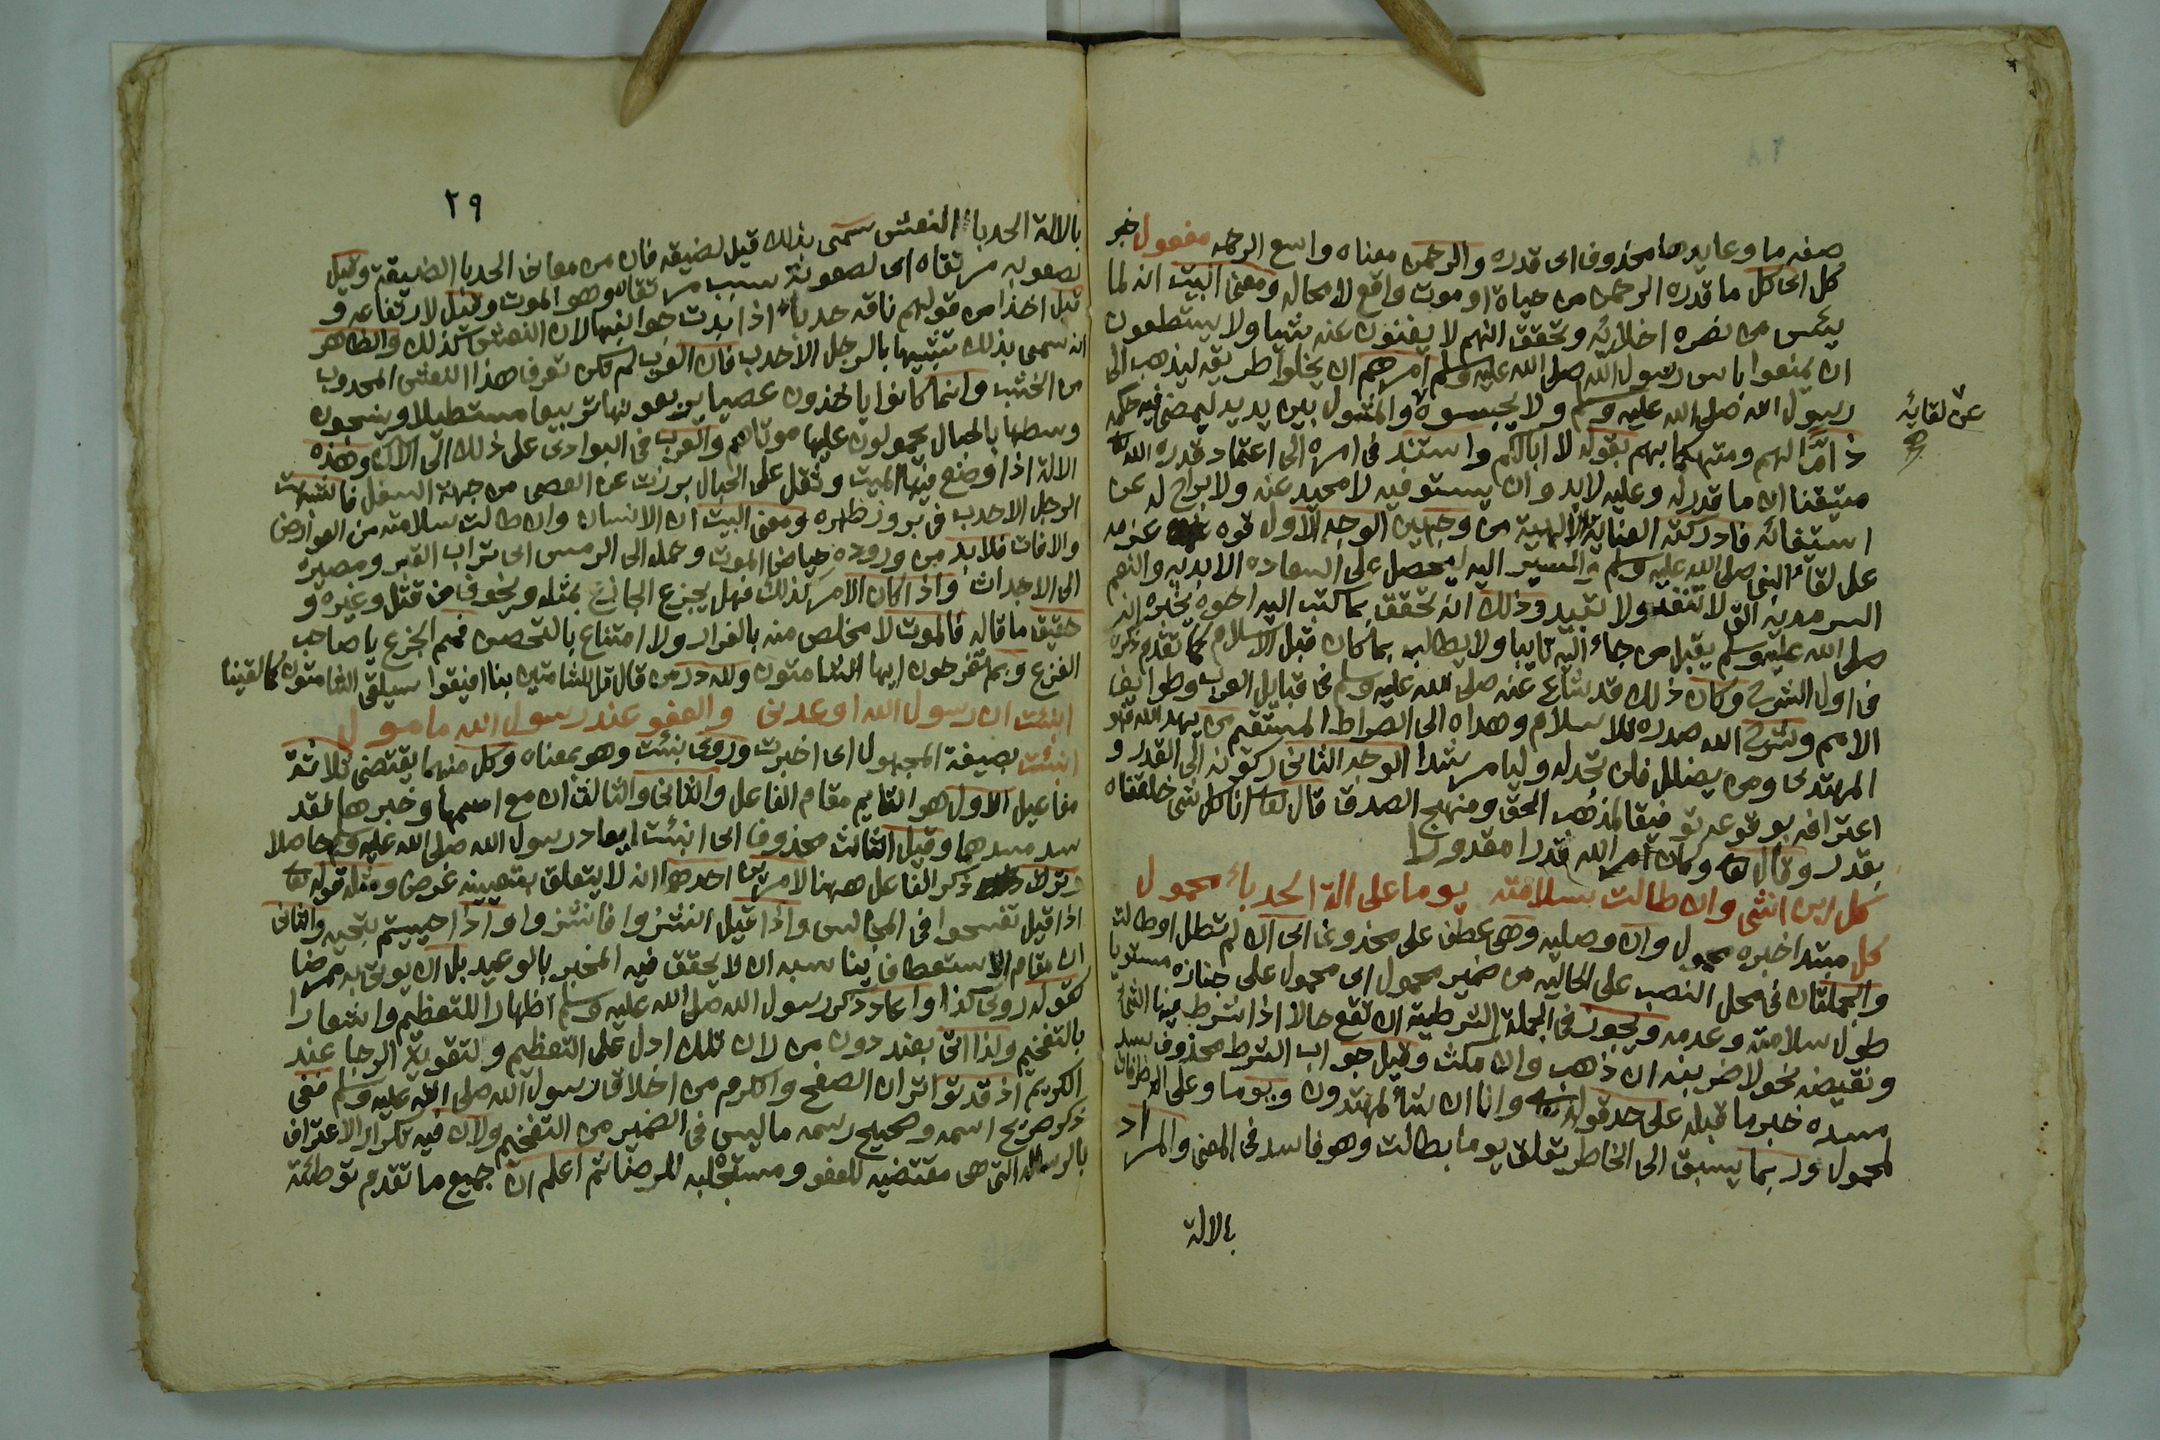 صفه ما وعايدها محذوف اى قدره والرحمن معناه واسع الرحمه مفعول خبر
كل اى كل ما قدره الرحمن من حياة او موت واقع لا محاله ومعنى البيت انه لما
يئس من نصره اخلائه وتحقق انهم لا يغنون عنه شيا ولا يستطعون
ان يمنعوا باس رسول الله صلى الله عليه وسلم امرهم ان يخلوا طريقه ليذهب الى
رسول الله صلى الله عليه وسلم ولا يحبسوه والمثول بين يديه ليمضى فيه حكمه
عن لقايه
ذاما لهم ومتهكما بهم بقوله لا ابالكم واستند فى امره الى اعتماد قدره الله تع
متيقنا ان ما قدر له وعليه لابد وان يستوفيه لا محيد عنه ولا براح له عن
استيفائه فادركته العناية الالهية من وجهين الوجه الاول قوه عزمه
على لقاء النبى صلى الله عليه وسلم والمسير اليه ليحصل على السعاده الابديه والنعم
السرمديه التى لا تنفد ولا تبيد وذلك انه تحقق بما كتب اليه اخوه يخبره انه
صلى الله عليه وسلم يقبل من جاء اليه تايبا ولا يطالبه بما كان قبل الاسلام كما تقدم ذكره
فى اول الشرح وكان ذلك قد شاع عنه صلى الله عليه وسلم فى قبايل العرب وطوايف
الامم وشرح الله صدره للاسلام وهداه الى الصراط المستقيم من يهد الله فهو
المهتدى ومن يضلل فلن تجد له وليا مرشدا الوجه الثانى ركونه الى القدر و
اعترافه بوقوعه توفيقا لمذهب الحق ومنهج الصدق قال تعا انا كل شى خلقناه
بقدر وقال تعا وكان امر الله قدرا مقدورا
كل ابن انثى وان طالت سلامته يوما على الة الحدباء محمول
كل مبتدا خبره محمول وان وصليه وهى عطف على محذوف اى ان لم تطل او طالت
والجملتان فى محل النصب على الحاليه من ضمير محمول اى محمول على جنازه مستويا
طول سلامته وعدمه ويجوز فى الجملة الشرطية ان تقع حالا اذا شرط فيها الشئ
ونقيضه نحو لاضربنه ان ذهب وان مكث وقيل جواب الشرط محذوف لسد
مسده خبر ما قبله على حد قوله تعا وانا ان شاء الله لمهتدون ويوما وعلى الة ظرفان
لمحمول وربما يسبق الى الخاطر تعلق يوما بطالت وهو فاسد فى المعنى والمراد
بالالة
٢٩
بالالة الحدباء النعش سمى بذلك قيل لضيقه فان من معانى الحدبا الضيقة وقيل
لصعوبه مرتقاه اى لصعوبة سبب مرتقاه وهو الموت وقيل لارتفاعه و
قيل اخذا من قولهم ناقه حدباء اذا بدت حوافيها لان النعش كذلك والظاهر
انه سمى بذلك تشبيها بالرجل الاحدب فان العرب لم تكن تعرف هذا النعش المحدوب
من الخشب وانما كانوا ياخذون عصيا يربعونها تربيعا مستطيلا وينسجون
وسطها بالحبال يحملون عليها موتاهم والعرب فى البوادى على ذلك الى الان وهذه
الالة اذا وضع فيها الميت وثقل على الحبال برزت عن العصى من جهة السفل فاشبهت
الرجل الاحدب فى بروز ظهره ومعنى البيت ان الانسان وان طالت سلامته من العوارض
والافات فلابد من وروده حياض الموت وحمله الى الرمس الى تراب القبر ومصيره
الى الاجداث واذا كان الامر كذلك فهل يجزع الجازع بمثله ويخوف من قتل وغيره و
حقيق ما قاله فالموت لا مخلص منه بالفرار ولا امتناع بالتحصن فيم الجزع يا صاحب
الفزع وبم تفرحون ايها الشامتون ولله در من قال قل للشامتين بنا افيقوا سيلقى الشامتون كما لقينا
انبئت ان رسول الله اوعدنى والعفو عند رسول الله مامول
انبئت بصيغة المجهول اى اخبرت وروى نبئت وهو بمعناه وكل منهما يقتضى ثلاثة
مفاعيل الاول هو القايم مقام الفاعل والثانى والثالث ان مع اسمها وخبرها لقد
سد مسدهما وقيل الثالث محذوف اى انبئت ايعاد رسول الله صلى الله عليه وسلم حاصلا
وترك ذكر الفاعل ههنا لامرين احدهما انه لا يتعلق بتعيينه غرض ومثله قوله تعا
اذا قيل تفسحوا فى المجالس واذا قيل انشزوا فانشزوا واذا حييتم بتحيه والثانى
ان مقام الاستعطاف يناسبه ان لا يحقق فيه المخبر بالوعيد بل ان يوتى به ممرضا
كقوله روى كذا واعاد ذكر رسول الله صلى الله عليه وسلم اظهارا للتعظيم واشعارا
بالتفخيم ولذا اتى بعند دون من لان تلك ادل على التعظيم ولتقوية الرجا عند
الكريم اذ قد تواتر ان الصفح والكرم من اخلاق رسول الله صلى الله عليه وسلم ففى
ذكر صريح اسمه وصحيح رسمه ما ليس فى الضمير من التفخيم ولان فيه تكرار الاعتراف
بالرساله التى هى مقتضيه للعفو ومستجلبه للرضا ثم اعلم ان جميع ما تقدم توطئة